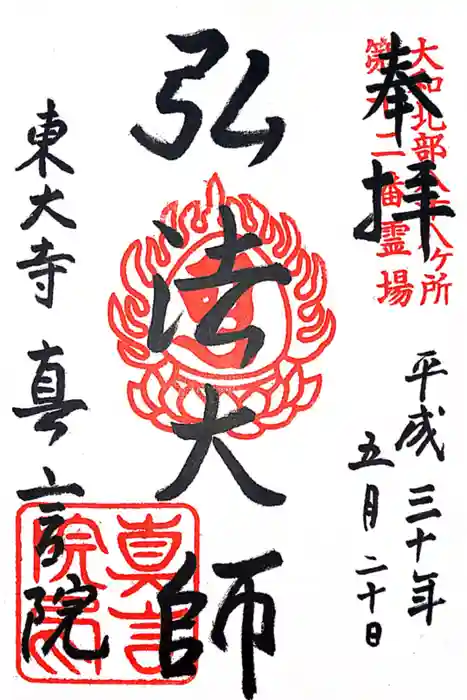 大和北部八十八ヶ所
第十二番霊場
奉拝
平成三十年
五月二十日
弘法大師
東大寺 真言院
真言院